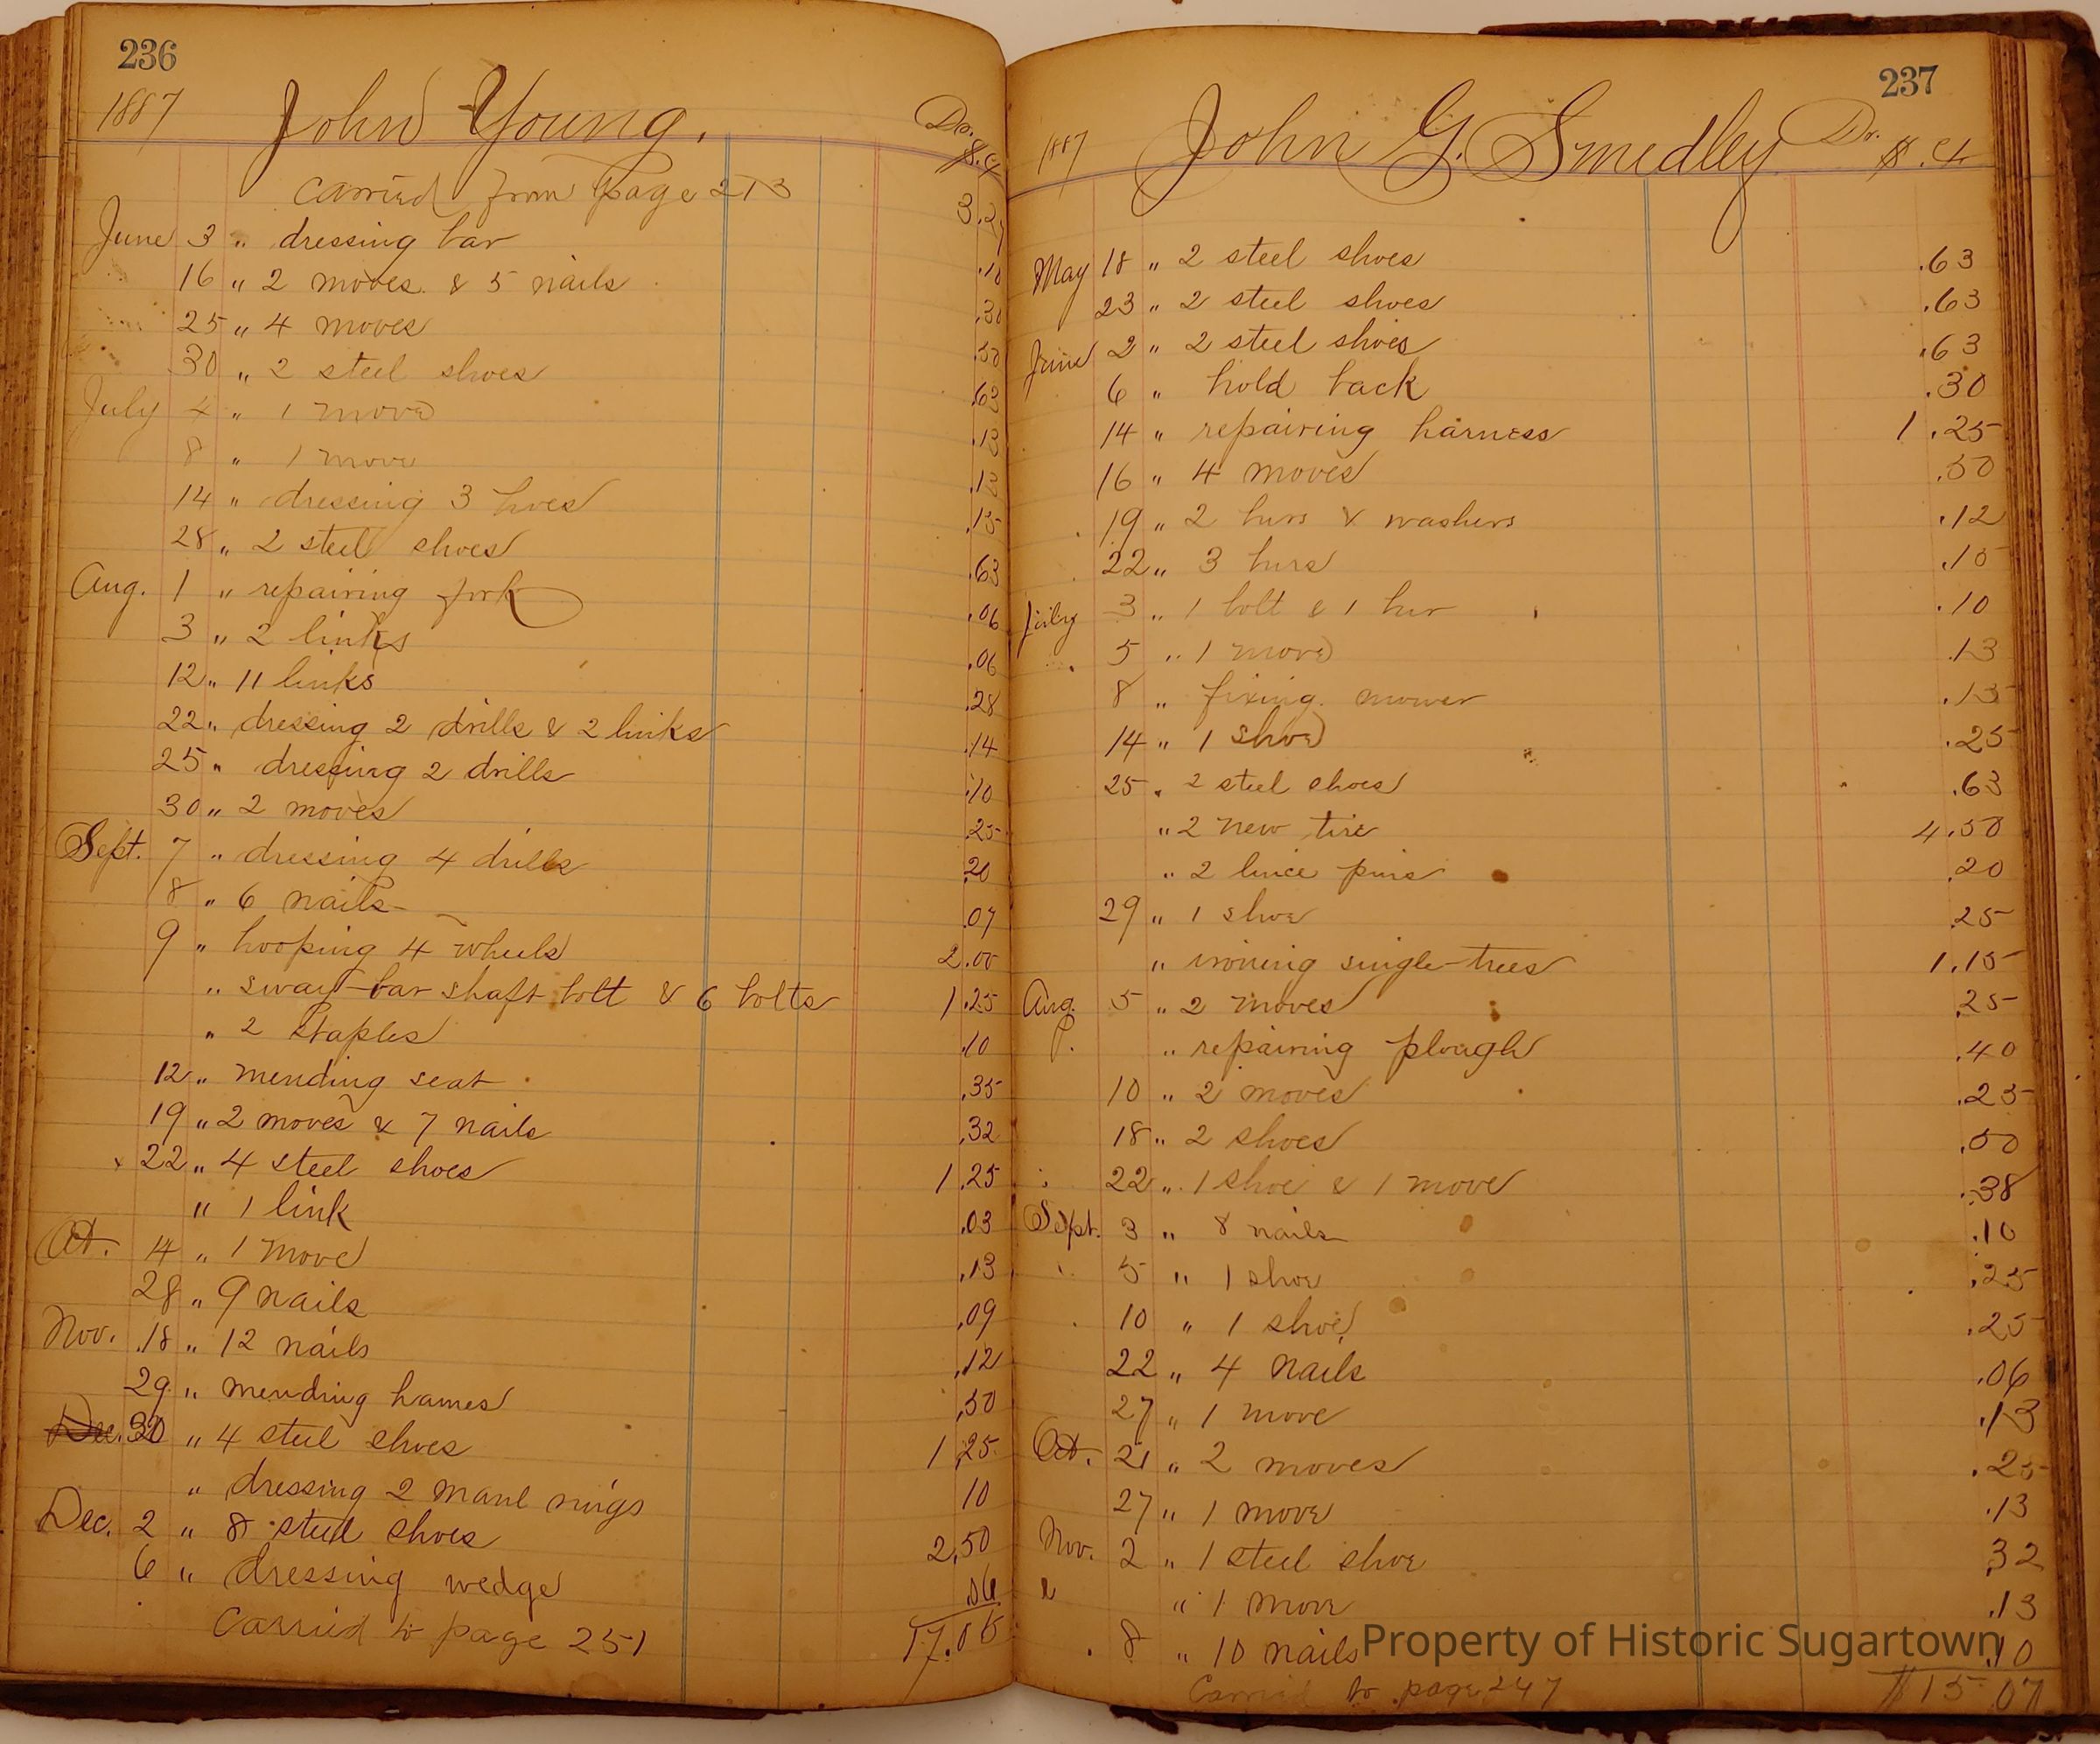 236
1887 John Young. Dr.
$.ct
Carried from page 213 3.2
June 3 " dressing bar .10
16 " 2 moves & 5 nails .30
25 " 4 moves .50
30 " 2 steel shoes .63
July 4 " 1 move .13
8 " 1 move .13
14 " dressing 3 hoes .15
28 " 2 steel shoes .63
Aug. 1 " repairing fork .06
3 " 2 links .06
12 " 11 links .28
22 " dressing 2 drills & 2 links .14
25 " dressing 2 drills .10
30 " 2 moves .25
Sept. 7 " dressing 4 drills .20
8 " 6 nails .07
9 " hooping 4 wheels 2.00
" sway-bar shaft bolt & 6 bolts 1.25
" 2 staples .10
12 " mending seat .35
19 " 2 moves & 7 nails .32
22 " 4 steel shoes 1.25
" 1 link .03
Oct. 4 " 1 move .13
28 " 9 nails .09
Nov. 18 " 12 nails .12
29 " mending hames .50
Dec. 30 " 4 steel shoes 1.25
" dressing 2 maul rings 10
Dec. 2 " 8 steel shoes 2.50
6 " dressing wedge .06
Carried to page 251 17.05
237
1887 John G. Smedley Dr. $.ct
May 18 " 2 steel shoes .63
23 " 2 steel shoes .63
June 2 " 2 steel shoes .63
6 " hold back .30
14 " repairing harness 1.25
16 " 4 moves .50
19 " 2 burs & washers .12
22 " 3 burs .10
July 3 " 1 bolt & 1 bur .10
5 " 1 move .13
8 " fixing mower .15
14 " 1 shoe .25
25 " 2 steel shoes .63
" 2 new tire 4.50
" 2 lince pins .20
29 " 1 shoe .25
" ironing single-trees 1.15
Aug. 5 " 2 moves .25
" repairing plough .40
10 " 2 moves .25
18 " 2 shoes .50
22 " 1 shoe & 1 move .38
Sept. 3 " 8 nails .10
5 " 1 shoe .25
10 " 1 shoe .25
22 " 4 nails .06
27 " 1 move .13
Oct. 21 " 2 moves .25
27 " 1 move .13
Nov. 2 " 1 steel shoe .32
" 1 move .13
8 " 10 nails .10
Carried to page 247 $15.07
Property of Historic Sugartown